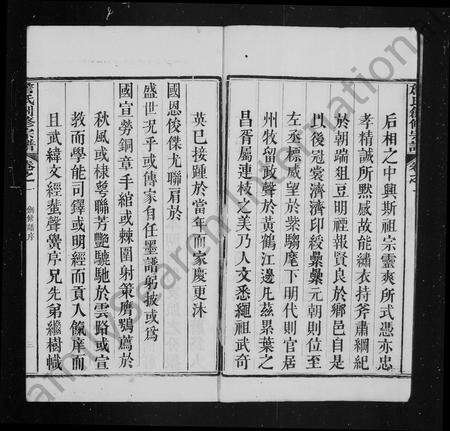 后相之中興斯祖宗靈爽所式憑亦忠
孝精誠所黙感故能繡衣持斧肅綱紀
於朝端俎豆明禋報賢良於鄉邑自是
門後冠裳濟濟印綬纍纍元朝則位至
左丞標威望於紫騮麾下明代則官居
州牧留政聲於黃鶴江邊凡茲累葉之
昌胥屬連枝之美乃人文悉繩祖武奇
英已接踵於當年而家慶更沐
國恩俊傑尤聯肩於
盛世況乎或傳家自任墨譜躬披或為
國宣勞銅章手綰或棘圍射策膺鶚薦於
秋風或棣萼聯芳艷驄馳於雲路或宣
教而學能司鐸或明經而貢入餼庠而
且武緯文經蜚聲黌序兄先弟繼樹幟
氏創修宗譜
卷之
創修譜序